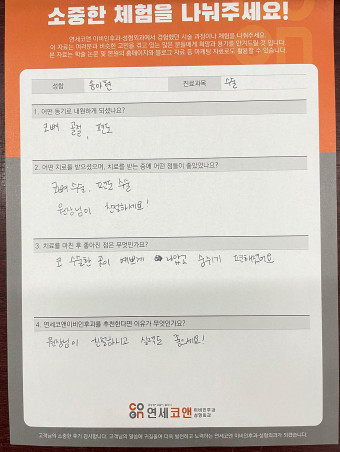 소중한 체험을 나눠주세요!
연세코앤 이비인후과·성형외과에서 경험했던 시술 과정이나 체험을 나눠주세요.
이 치료는 여러분과 비슷한 고민을 겪고 있는 많은 분들에게 희망과 용기를 안겨드릴 것 입니다.
본 자료는 학술 논문 및 본원의 홈페이지와 블로그 자료 등 마케팅 자료로도 활용될 수 있습니다.
성함 진료과목 수술
1. 어떤 동기로 내원하게 되셨나요?
코뼈 골절, 편도
2. 어떤 치료를 받으셨으며, 치료를 받는 중에 어떤 점들이 좋았었나요?
코뼈수술, 편도 수술
원장님이 친절하세요!
3. 치료를 마친 후 좋아진 점은 무엇인가요?
코 수술한 곳이 예쁘게 나왔고 숨쉬기 편해졌어요
4. 연세코앤이비인후과를 추천한다면 이유가 무엇인가요?
원장님이 친절하시고 실력도 좋으세요!
연세코앤 이비인후과
성형외과
고객님의 소중한 후기 감사합니다. 고객님의 말씀에 귀기울여 더욱 발전하고 노력하는 연세코앤 이비인후과·성형외과가 되겠습니다.